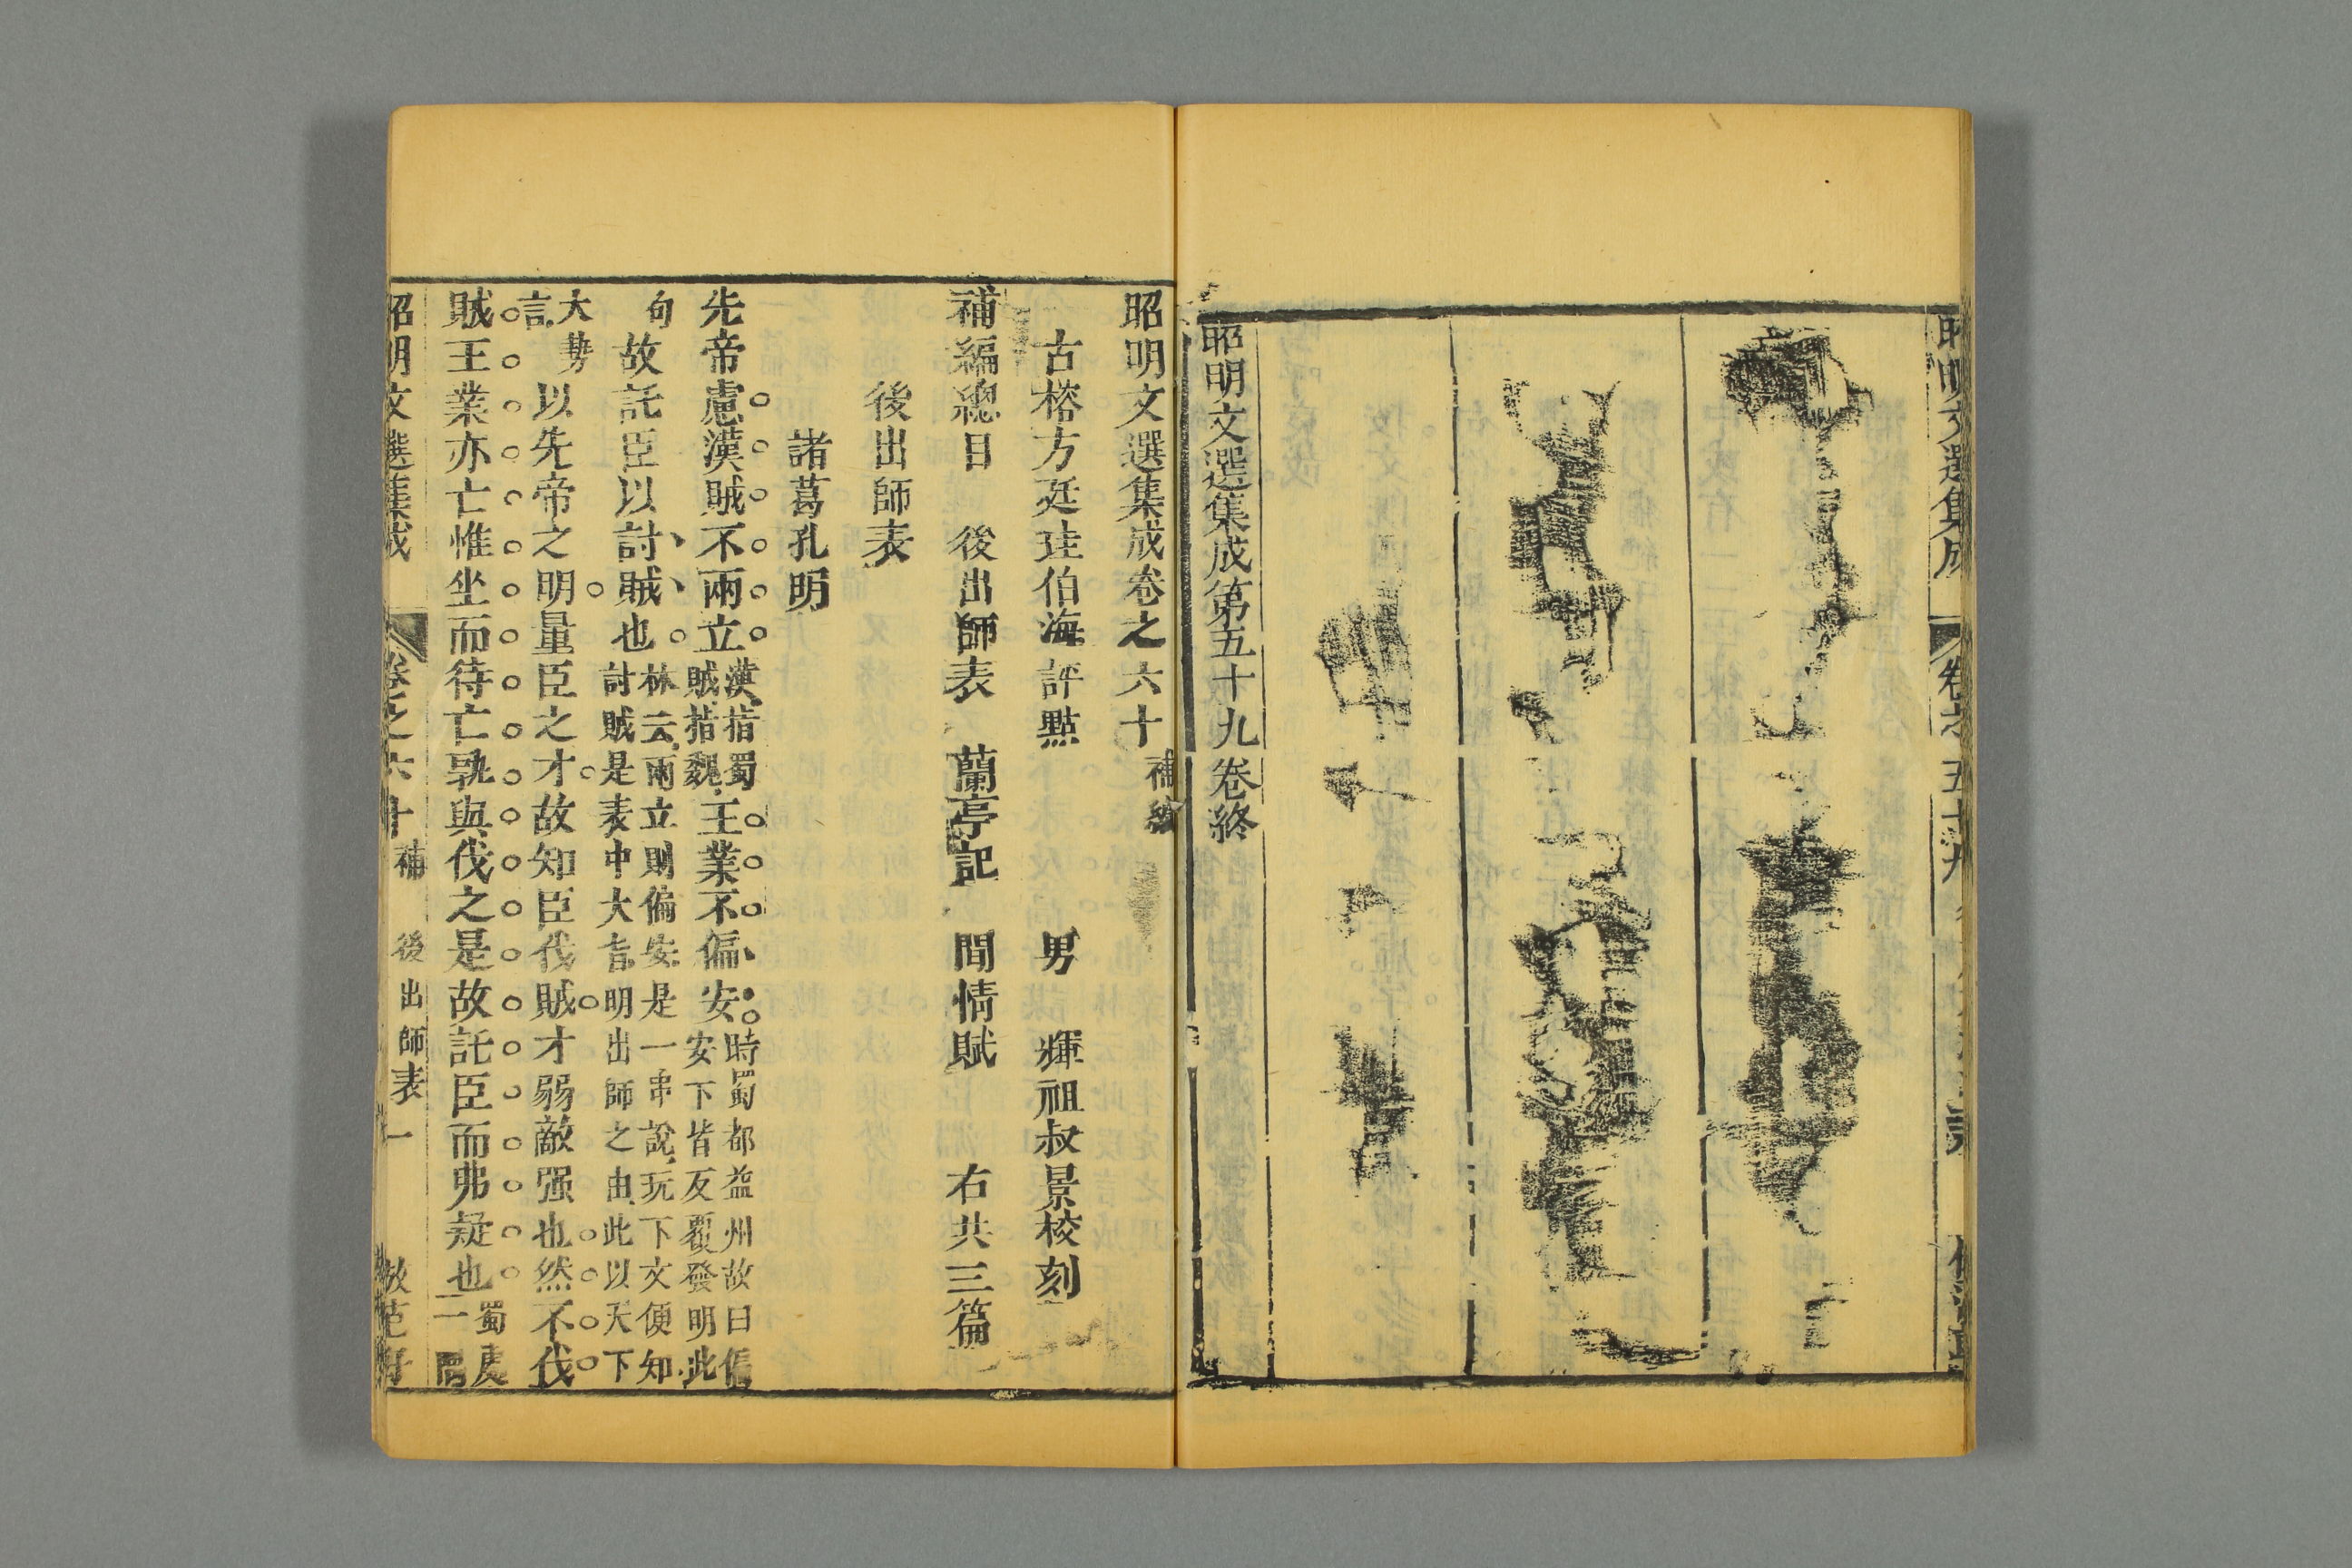 昭明文選集成 卷之五十九
昭明文選集成第五十九卷終
昭明文選集成卷之六十補編
古榕方廷珪伯海評點 男 煇祖叔景校刻
補編總目 後出師表 蘭亭記 閒情賦 右共三篇
後出師表
諸葛孔明
先帝慮漢賊不兩立漢指蜀賊指魏王業不偏安時蜀都益州故曰偏安下皆反覆發明此
句故託臣以討賊也林云兩立則偏安是一串說玩下文便知討賊是表中大旨明出師之由此以天下
大勢言以先帝之明量臣之才故知臣伐賊才弱敵强也然不伐
賊王業亦亡惟坐而待亡孰與伐之是故託臣而弗疑也蜀處一隅
昭明文選集成 卷之六十補 後出師表 一